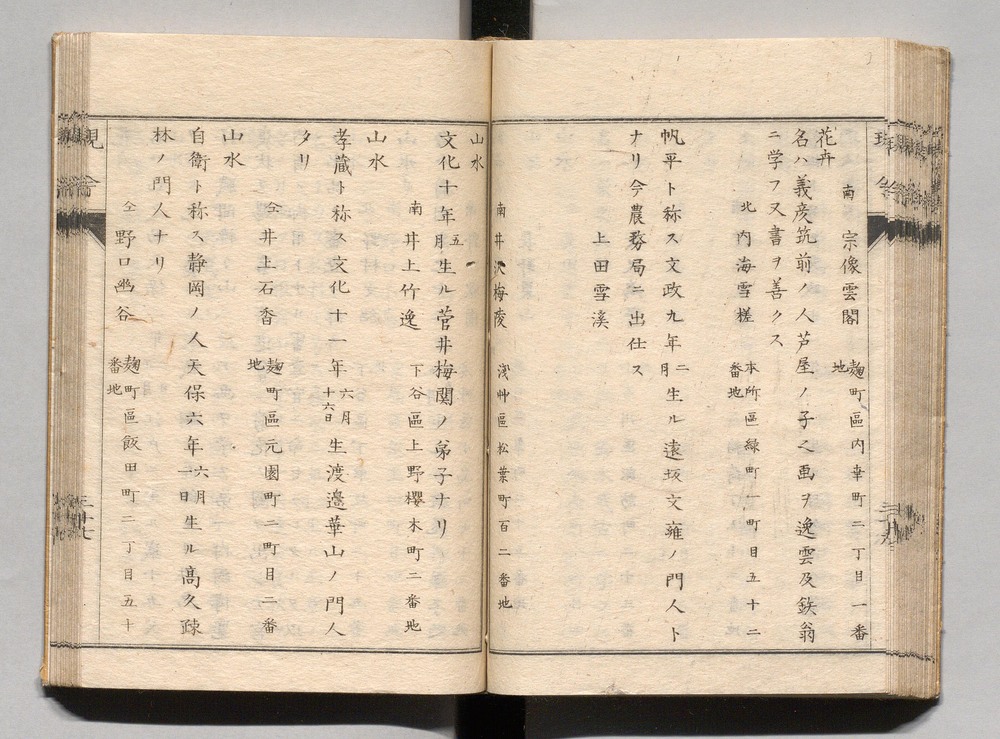 花卉
南 宗像雲閣 麹町區内幸町二丁目一番
地
名ハ義彦筑前ノ人芦屋ノ子之画ヲ逸雲及鉄翁
ニ学フ又書ヲ善クス
北 内海雪槎 本所區緑町一町目五十二
番地
帆平ト称ス文政九年二月生ル遠坂文雍ノ門人ト
ナリ今農務局ニ出仕ス
上田雪溪
南 井沢梅陵 浅艸區松葉町百二番地
山水
文化十年五月生ル菅井梅関ノ弟子ナリ
南 井上竹逸 下谷區上野櫻木町二番地
山水
孝蔵ト称ス文化十一年六月十六日生渡邉華山ノ門人
タリ
仝 井上石香 麹町區元園町二町目二番
地
山水
自衛ト称ス静岡ノ人天保六年六月一日生ル高久疎
林ノ門人ナリ
仝 野口幽谷 麹町區飯田町二丁目五十
番地